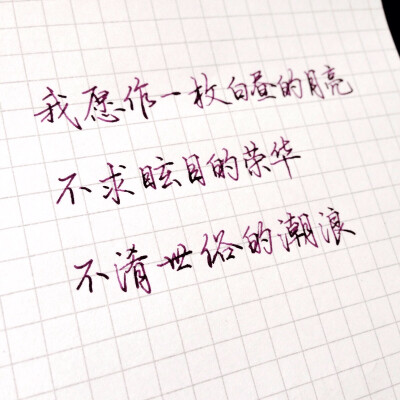 我愿作一枚白昼的月亮
不求眩目的荣华
不淆世俗的潮浪